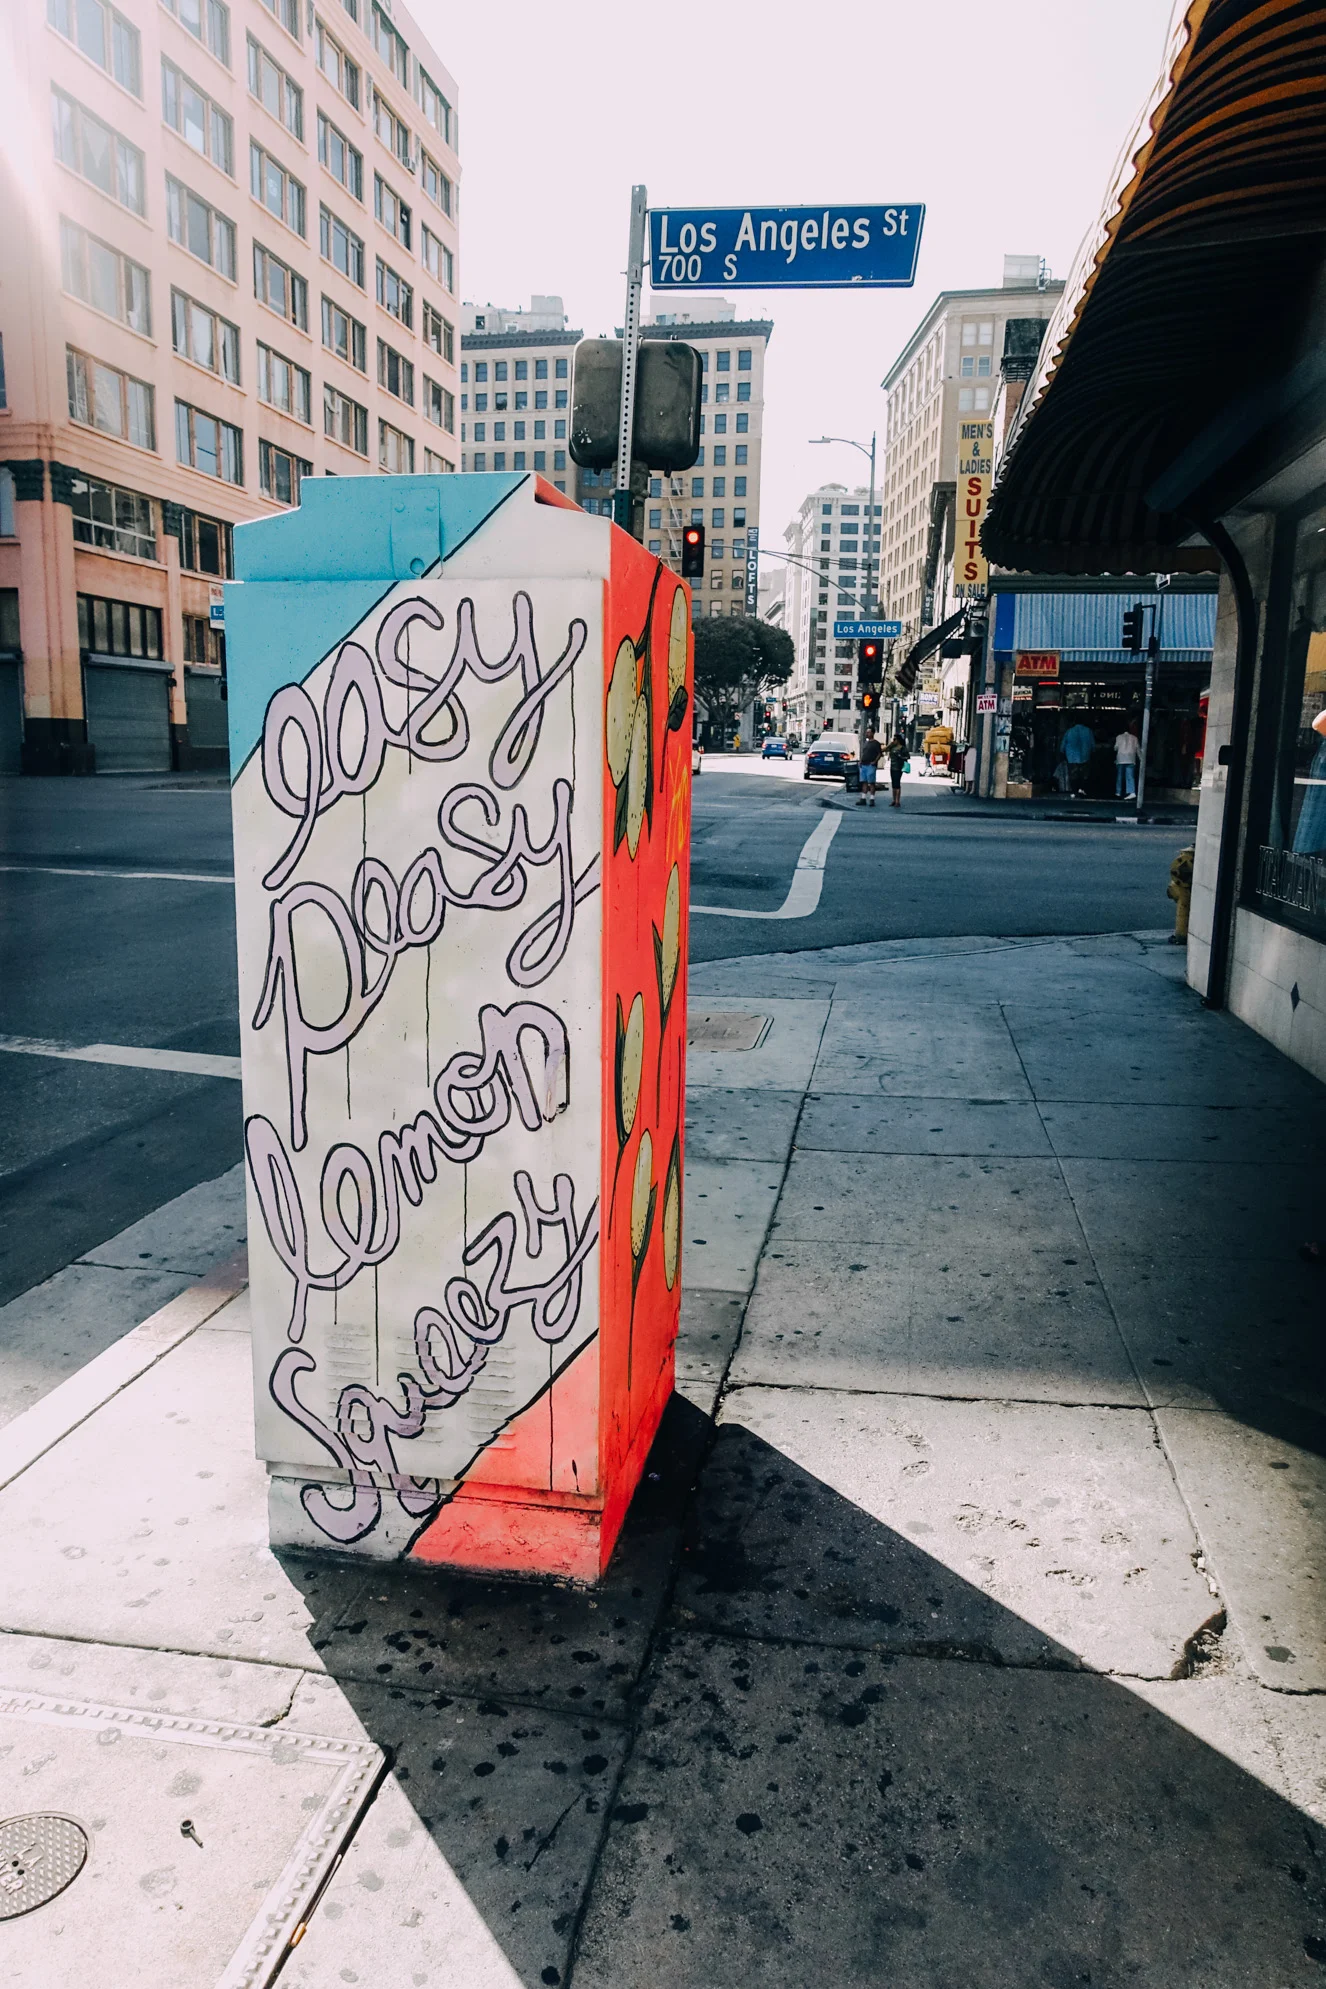 Los Angeles St
700 S
MEN'S
&
LADIES
SUITS
ON SALE
LOFTS
Los Angeles
ATM
ATM
easy
peasy
lemon
Squeezy